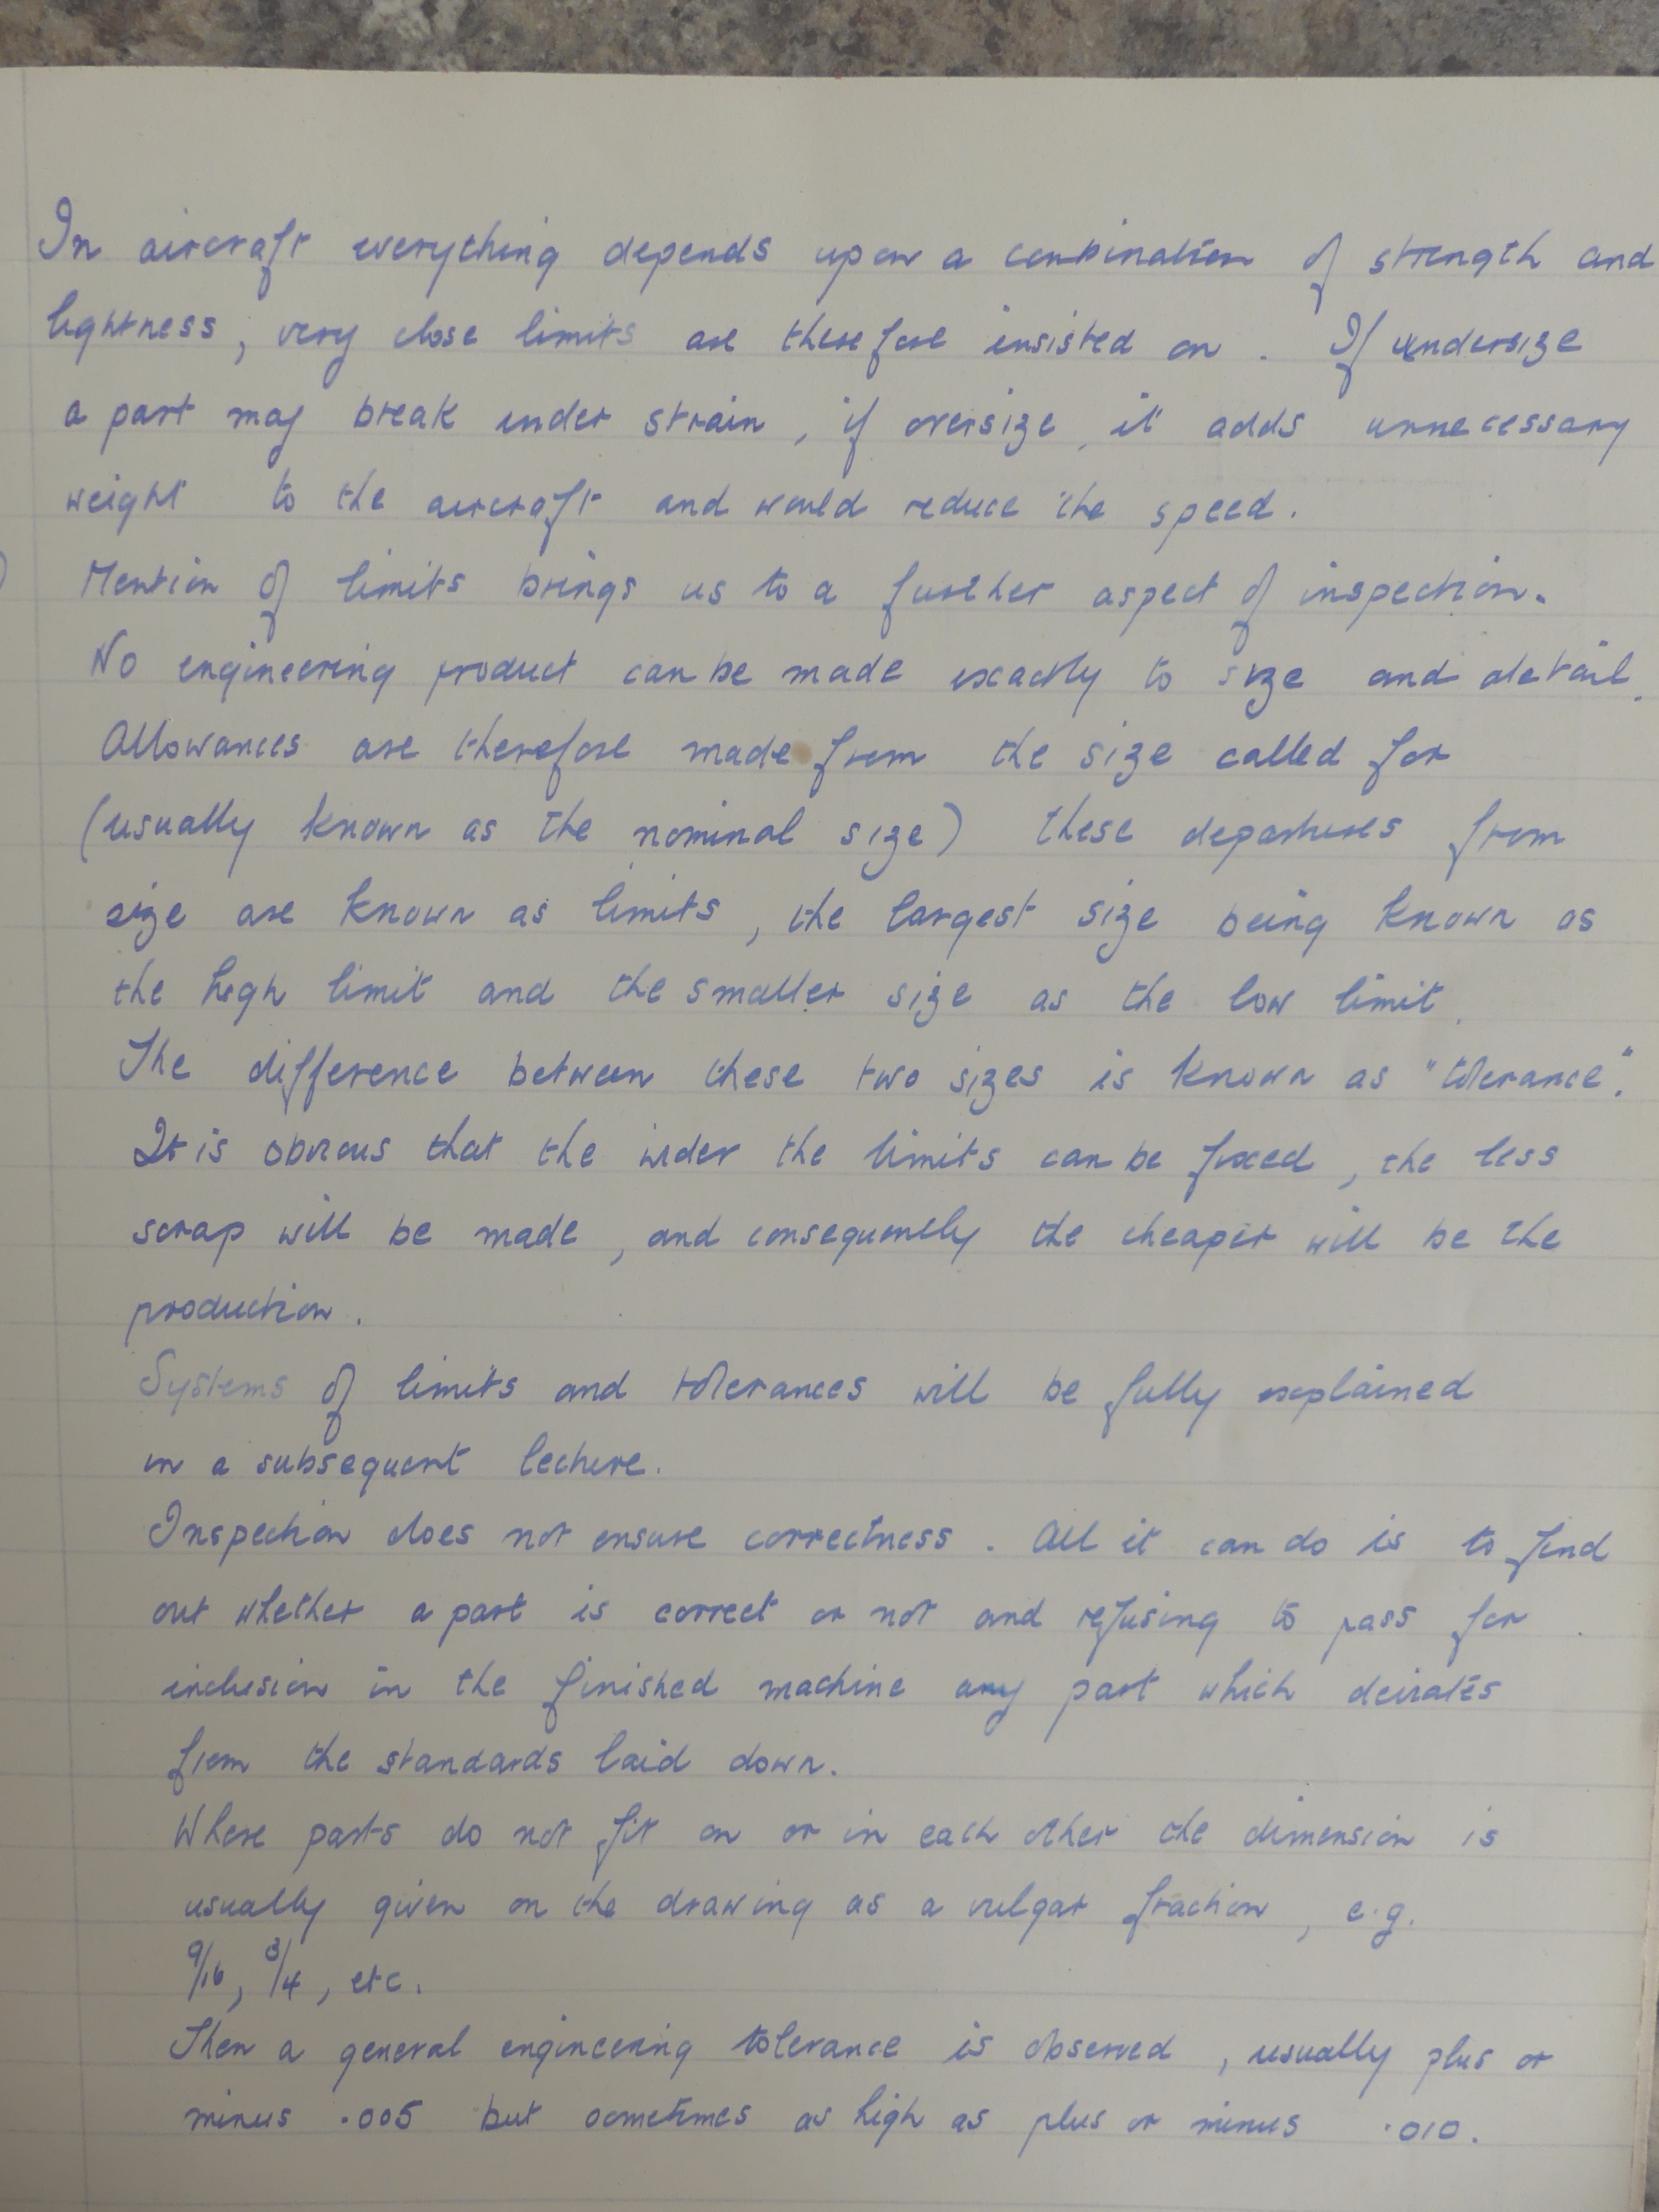 In aircraft everything depends upon a combination of strength and
lightness, very close limits are therefore insisted on. If undersize
a part may break under strain, if oversize, it adds unnecessary
weight to the aircraft and would reduce the speed.
Mention of limits brings us to a further aspect of inspection.
No engineering product can be made exactly to size and detail.
Allowances are therefore made from the size called for
(usually known as the nominal size) these departures from
size are known as limits, the largest size being known as
the high limit and the smaller size as the low limit.
The difference between these two sizes is known as "tolerance".
It is obvious that the wider the limits can be fixed, the less
scrap will be made, and consequently the cheaper will be the
production.
Systems of limits and tolerances will be fully explained
in a subsequent lecture.
Inspection does not ensure correctness. All it can do is to find
out whether a part is correct or not and refusing to pass for
inclusion in the finished machine any part which deivates
from the standards laid down.
Where parts do not fit on or in each other the dimension is
usually given on the drawing as a vulgar fraction, e.g.
9/16, 3/4, etc.
Then a general engineering tolerance is observed, usually plus or
minus .005 but sometimes as high as plus or minus .010.